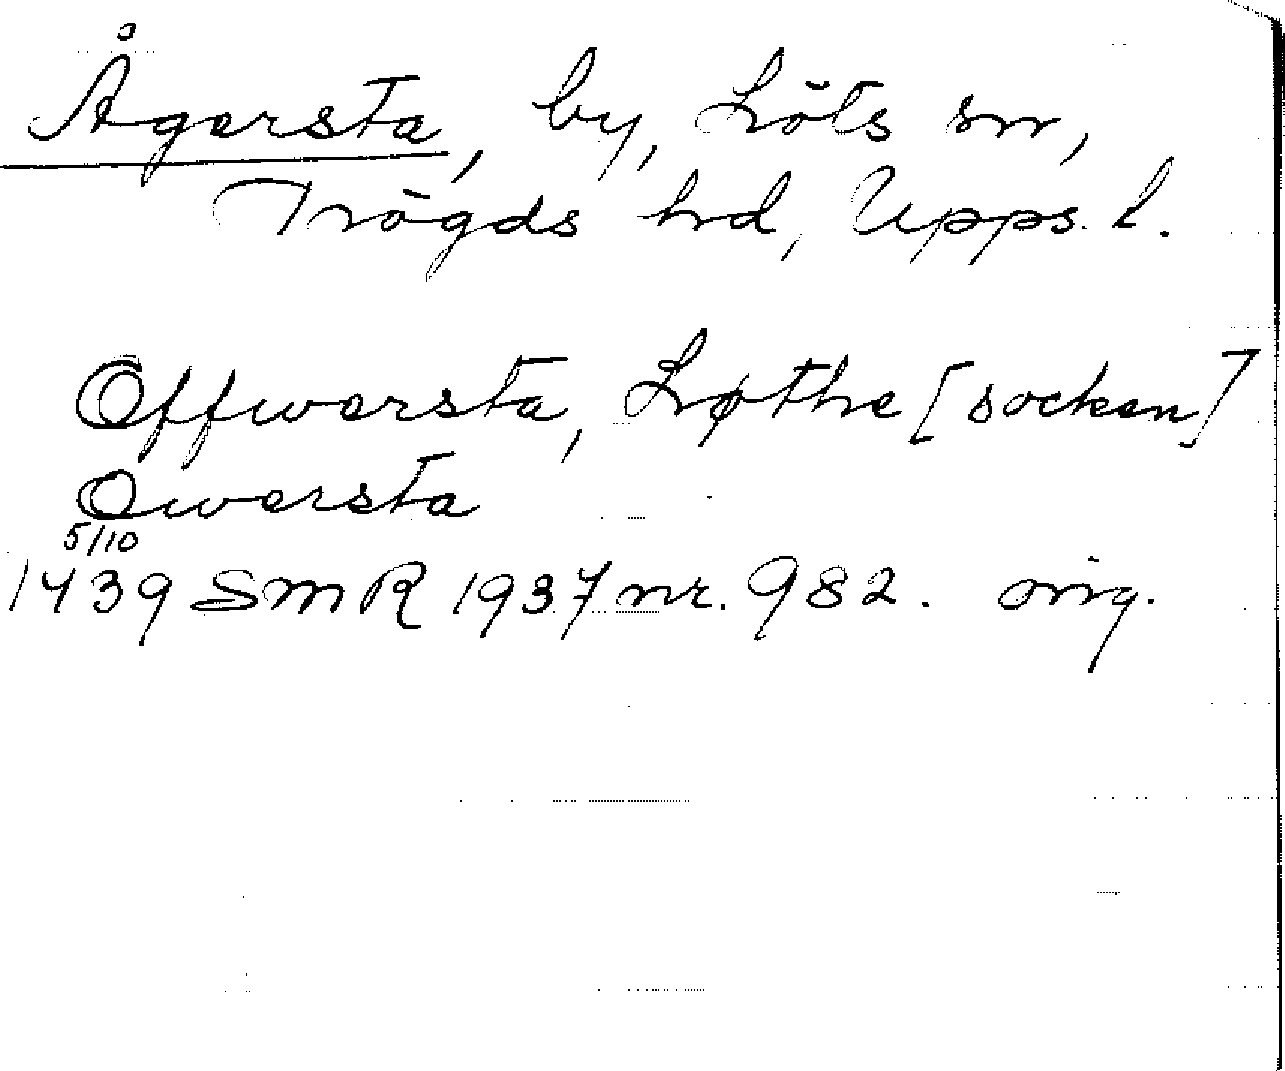 Ågersta, by, Löts sn,
Trögds hrd, Upps. l.
Offwersta, Løthe [socken]
Owersta
5/10
1439 SMR 1937 nr. 982. orig.